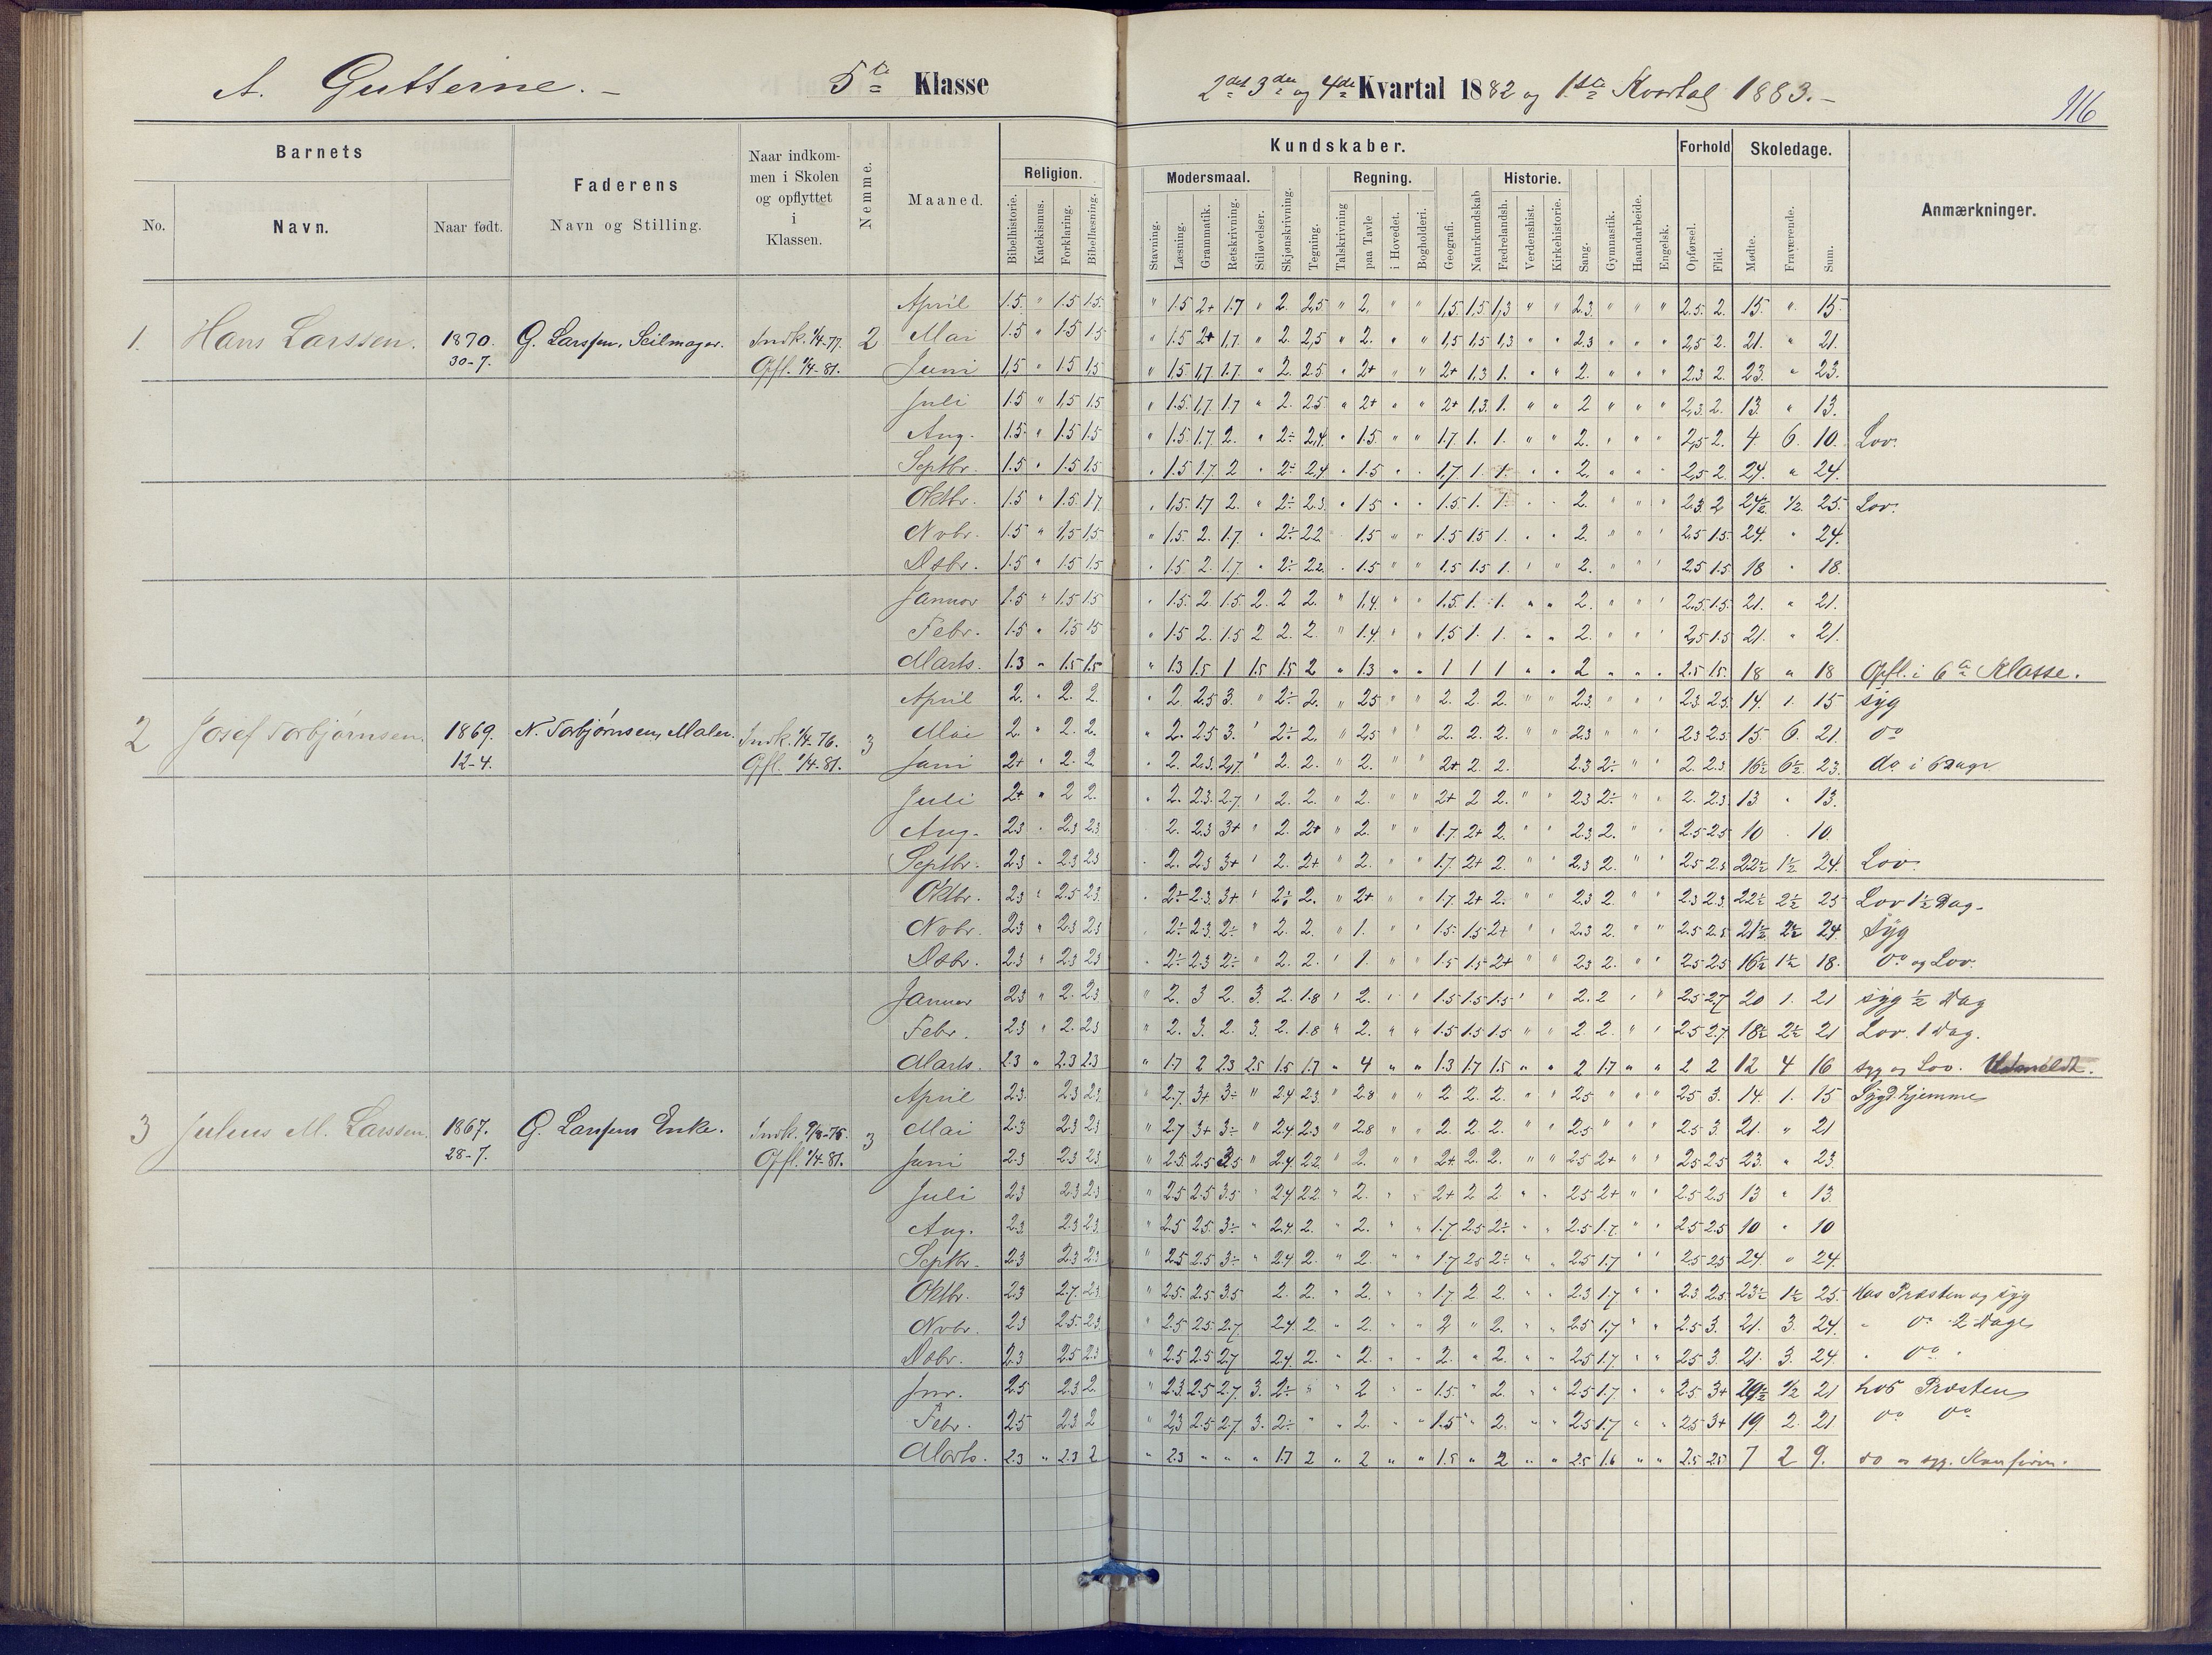 A. Gutterne. – 5te Klasse
2det 3die og 4de Kvartal 1882 og 1ste Kvartal 1883. –
116
Barnets
Faderens
Naar indkommen i Skolen og opflyttet i Klassen.
Nemme.
Maaned.
Kundskaber.
Forhold
Skoledage.
Anmærkninger.
No.
Navn.
Naar født.
Navn og Stilling.
Religion.
Modersmaal.
Regning.
Historie.
Bibelhistorie. Katekismus. Forklaring. Bibellæsning.
Stavning. Læsning. Grammatik. Retskrivning. Stiløvelser. Skjønskrivning. Tegning. Talskrivning paa Tavle i Hovedet. Bogholderi. Geografi. Naturkundskab Fædrelandsh. Verdenshist. Kirkehistorie. Sang. Gymnastik. Haandarbeide. Engelsk. Opførsel. Flid. Mødte. Fraværende. Sum.
April 1.5 " 1.5 1.5 " 1.5 2+ 1.7 " 2. 2,5 " 2. " " 1,5. 1,5. 1,3 " " 2.3. " " " 2.5. 2. 15. " 15.
1. Hans Larssen. 1870. G. Larssen, Seilmager. Indk. 1/4-77. 2 Mai 1.5 " 1.5 1.5 " 1.5 2+ 1,7. " 2. 2,5 " 2. " " 1,5 1,5 1,3 " " 2.3 " " " 2,5 2. 21. " 21.
30-7. Opfl. 1/4-81. Juni 1,5 " 1.5 1,5 " 1,5 1,7 1.7 " 2. 2.5 " 2+ " " 2+ 1,3 1. " " 2. " " " 2,3 2. 23. " 23.
Juli 1.5 " 1,5 1.5 " 1.5. 1,7 1.7 " 2. 2.5 " 2+ " " 2+ 1,3. 1. " " 2 " " " 2,3. 2. 13. " 13.
Aug. 1.5. " 1.5 1.5 " 1.5. 1.7. 2. " 2÷ 2,4. " 1.5. " " 1.7 1. 1. " " 2. " " " 2,5 2. 4. 6. 10. Lov.
Septbr. 1.5 " 1.5 1.5 " 1.5 1.7. 2 " 2÷ 2.4 " 1.5 " " 1,7. 1. 1. " " 2. " " " 2,5 2. 24. " 24.
Oktbr. 1.5 " 1.5. 1.7. " 1,5. 1.7 2. " 2÷ 2.3. " 1.5 " " 1.5. 1. 1. " " 2. " " " 2.3 2 24½ ½. 25. Lov.
Novbr. 1.5 " 1,5 1,5 " 1.5. 2. 1.7. " 2÷ 2.2 1.5 " " 1.5 1.5 1. " " 2. " " " 2.5 1.5. 24. " 24.
Dsbr. 1.5 " 1.5 1.5 " 1.5. 2. 1.7. " 2÷ 2.2. " 1.5 " " 1,5 1.5 1. " " 2. " " " 2.5 1.5 18 " 18.
Januar 1.5 " 1,5 1.5 " 1.5. 2 1.5. 2. 2 2. " 1,4. " " 1,5. 1. 1. " " 2. " " " 2.5. 1.5. 21. " 21.
Febr. 1.5 " 1,5 1.5 " 1.5 2. 1.5 2 2. 2. " 1.4. " " 1,5 1. 1. " " 2. " " " 2,5 1.5 21. " 21.
Marts. 1.3 " 1.5 1.5 " 1.3 1.5 1 1.5 1.5 2 " 1.3 " " 1 1 1 " " 2 " " " 2.5 1.5. 18 " 18 Opfl. i 6te Klasse.
April 2. " 2. 2. " 2. 2.5 3. " 2÷ 2. " 2.5 " " 2. 2. 2. " " 2.3. " " " 2.3 2.5 14. 1. 15 syg
2 Josef Torbjørnsen. 1869. N. Torbjørnsen, Maler. Indk. 1/4-76. 3 Mai 2. " 2. 2. " 2. 2.5 3. " 2÷ 2. " 2.5 " " 2. 2. 2. " " 2.3 " " " 2.3 2.5 15. 6. 21. do
12-4. Opfl. 1/4-81. Juni 2+ " 2. 2 " 2. 2.3. 2,7. " 2. 2. " 2. " " 2+ 2. 2. 2.3 2÷ " " 2. 2.3 16½ 6½ 23. do i 6 Dage
Juli 2+ " 2 2. " 2. 2.3. 2.7. " 2. 2. " 2. " " 2+ 2 2. " " 2.3 2÷ " " 2. 2.3 13 " 13.
Aug. 2.3 " 2.3 2.3 2. 2.3 3+ " 2. 2+ " 2. " " 1.7. 2+ 2. " " 2.3. 2. " " 2.5 2.5 10 " 10.
Septbr. 2.3 " 2.3 2.3 " 2. 2.3 3+ " 2. 2+ " 2. " " 1.7. 2+ 2. " " 2.3 2. " " 2.5 2.5 22½ 1½ 24. Lov.
Oktbr. 2.3 " 2.5 2.3. " 2÷ 2.3. 3+ " 2÷ 2. " 2+ " " 1.7. 2+ 2. " " 2.3 2. " " 2.3 2.3 22½ 2½ 25 Lov 1½ Dag.
Novbr. 2.3 " 2.3 2.3 " 2÷ 2.3. 2÷ " 2. 2. " 1. " " 1.5. 1.5 2+ " " 2.3 2. " " 2.5 2.5 21½ 2½ 24. Syg
Dsbr. 2.3 " 2.3 2.3 " 2÷ 2.3 2÷ " 2. 2. " 1. " " 1.5 1.5 2+ " " 2.3 2. " " 2.5 2.5 16½ 1½ 18. do og Lov.
Januar 2.3 " 2. 2.3 " 2. 3 2. 3. 2. 1.8 " 2. " " 1.5 1.5 1.5 " " 2. 2 " " 2.5 2.7 20 1. 21 syg ½ Dag
Febr. 2.3 " 2. 2.3 " 2. 3. 2. 3. 2. 1.8 " 2. " " 1.5 1.5 1.5 " " 2 2. " " 2.5 2.7. 18½ 2½ 21 Lov. 1 Dag.
Marts. 2.3 " 2.3 2.3 " 1.7 2 2.3 2.5 1.5 1.7 " 4 " " 1.3 1.7 1.5 " " 2 1.7 " " 2 2 12 4 16 syg og Lov. Udmeldt.
April 2.3. 2.3 2.3 " 2.7. 3+ 3÷ " 2.4 2.3 " 2.8 " " 2. 2. 2. " " 2.5 " " " 2.5 3. 14. 1. 15
3 Julius M. Larssen. 1867. G. Larssens Enke. Indk. 9/8-75. 3 Mai 2.3 2.3 2.3 " 2.7 3+ 3÷ " 2.4 2.3 " 2.8 " " 2. 2. 2. " " 2.5 " " " 2.5 3. 21. " 21
28-7. Opfl. 1/4-81. Juni 2.3 2.3 2.3 " 2.5. 2.5 3.5 " 2.4. 2.2. " 2. " " 2+ 2. 2. " " 2.5 2+ " " 2.5 2.5 23. " 23.
Juli 2.3 2.3 2.3 " 2.5 2.5 3.5 " 2.4. 2.2. " 2. " " 2+ 2 2 " " 2.5 2+ " " 2.5 2.5 13 " 13.
Aug. 2.3 2.3 2.3. " 2.5 2.5. 3÷ " 2.4. 2. " 2. " " 1.7 2.5 2÷ " " 2.5 1.7. " " 2.5 2.5 10 " 10
Septbr. 2.3 2.3 2.3 " 2.5 2.5 3÷ " 2.4 2. " 2 " " 1.7 2.5 2÷ " " 2.5 1.7 " " 2.5 2.5 24. " 24.
Oktbr. 2.3 2.7. 2.3 " 2.5. 2.5 3.5 2. 2. " 2. " " 1.7 2. 2. " " 2.3 1.7. " " 2.3 2.5 23½ 1½ 25. hos Præsten og syg
Novbr. 2.3 2.5. 2.3. " 2.5 2.5. 2.7. 2.4. 2 " 2. " " 2 " 2. " " 2.5 1.7 " " 2.5 3. 21. 3. 24. " do 2 Dage
Dsbr. 2.3 2.5 2.3 " 2.5 2.5 2.7 2.4. 2. " 2. " " 2. " 2. " " 2.5 1.7. " " 2.5 3. 21. 3. 24. " do "
Jnr. 2.5 2.3 2. " 2.3. 2.5 2.7. 3. 2÷ " " 2 " " 1.5 " 2. " " 2.5 1.7. " " 2.5 3+ ½ 21 hos Præsten
Febr. 2.5 2.3 2 " 2,3 2.5 2.7. 3. 2÷ " " 2. " " 1.5 " 2. " " 2.5 1.7 " " 2.5 3+ 19 2. 21 do do
Marts. 2.3 " 2.3 2 " 2.3 " " " " 1.7 2 " 2 " " 1.5 " 2 " " 2.5 1.6 " " 2.5 2.5 7 2 9. do og syg. Konfirm.